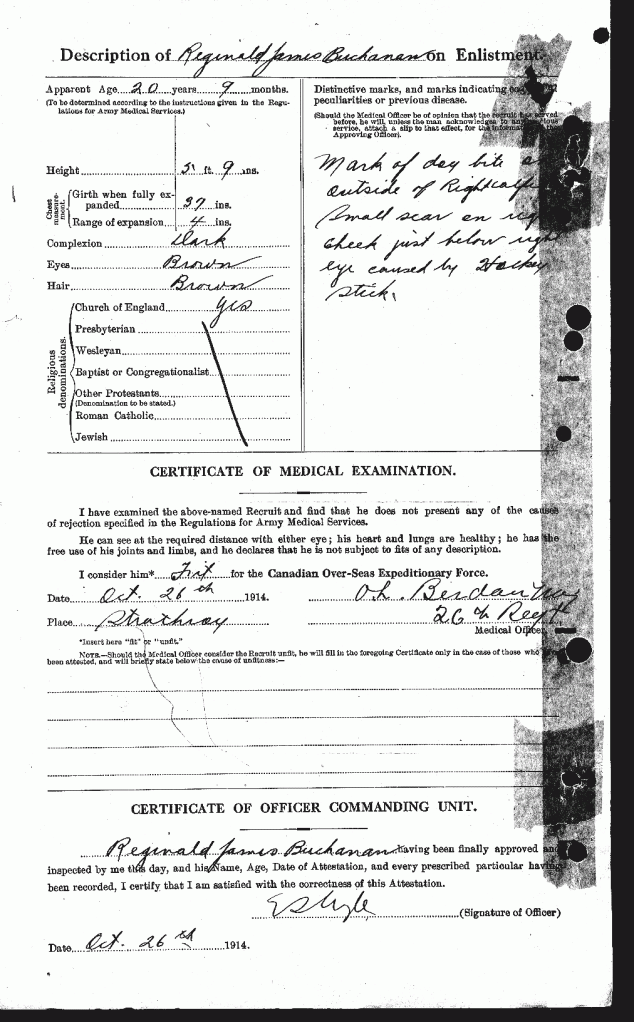 Description of Reginald James Buchanan on Enlistment.
Apparent Age 20 years 9 months.
(To be determined according to the instructions given in the Regulations for Army Medical Services.)
Height 5 ft. 9 ins.
Chest measurement. Girth when fully expanded 37 ins.
Range of expansion 4 ins.
Complexion Dark
Eyes Brown
Hair Brown
Religious denominations.
Church of England yes
Presbyterian
Wesleyan
Baptist or Congregationalist
Other Protestants
(Denomination to be stated.)
Roman Catholic
Jewish
Distinctive marks, and marks indicating
peculiarities or previous disease.
(Should the Medical Officer be of opinion that the recruit has served
before, he will, unless the man acknowledges to any previous
service, attach a slip to that effect, for the information of the
Approving Officer).
Mark of dog bite on
outside of Right calf
Small scar on right
cheek just below right
eye caused by Hockey
stick.
CERTIFICATE OF MEDICAL EXAMINATION.
I have examined the above-named Recruit and find that he does not present any of the causes
of rejection specified in the Regulations for Army Medical Services.
He can see at the required distance with either eye; his heart and lungs are healthy; he has the
free use of his joints and limbs, and he declares that he is not subject to fits of any description.
I consider him* Fit for the Canadian Over-Seas Expeditionary Force.
Date Oct. 26th 1914.
Place Strathroy
26th Regt
Medical Officer.
*Insert here "fit" or "unfit."
NOTE.—Should the Medical Officer consider the Recruit unfit, he will fill in the foregoing Certificate only in the case of those who have
been attested, and will briefly state below the cause of unfitness:—
CERTIFICATE OF OFFICER COMMANDING UNIT.
Reginald James Buchanan having been finally approved and
inspected by me this day, and his Name, Age, Date of Attestation, and every prescribed particular having
been recorded, I certify that I am satisfied with the correctness of this Attestation.
(Signature of Officer)
Date Oct. 26th 1914.